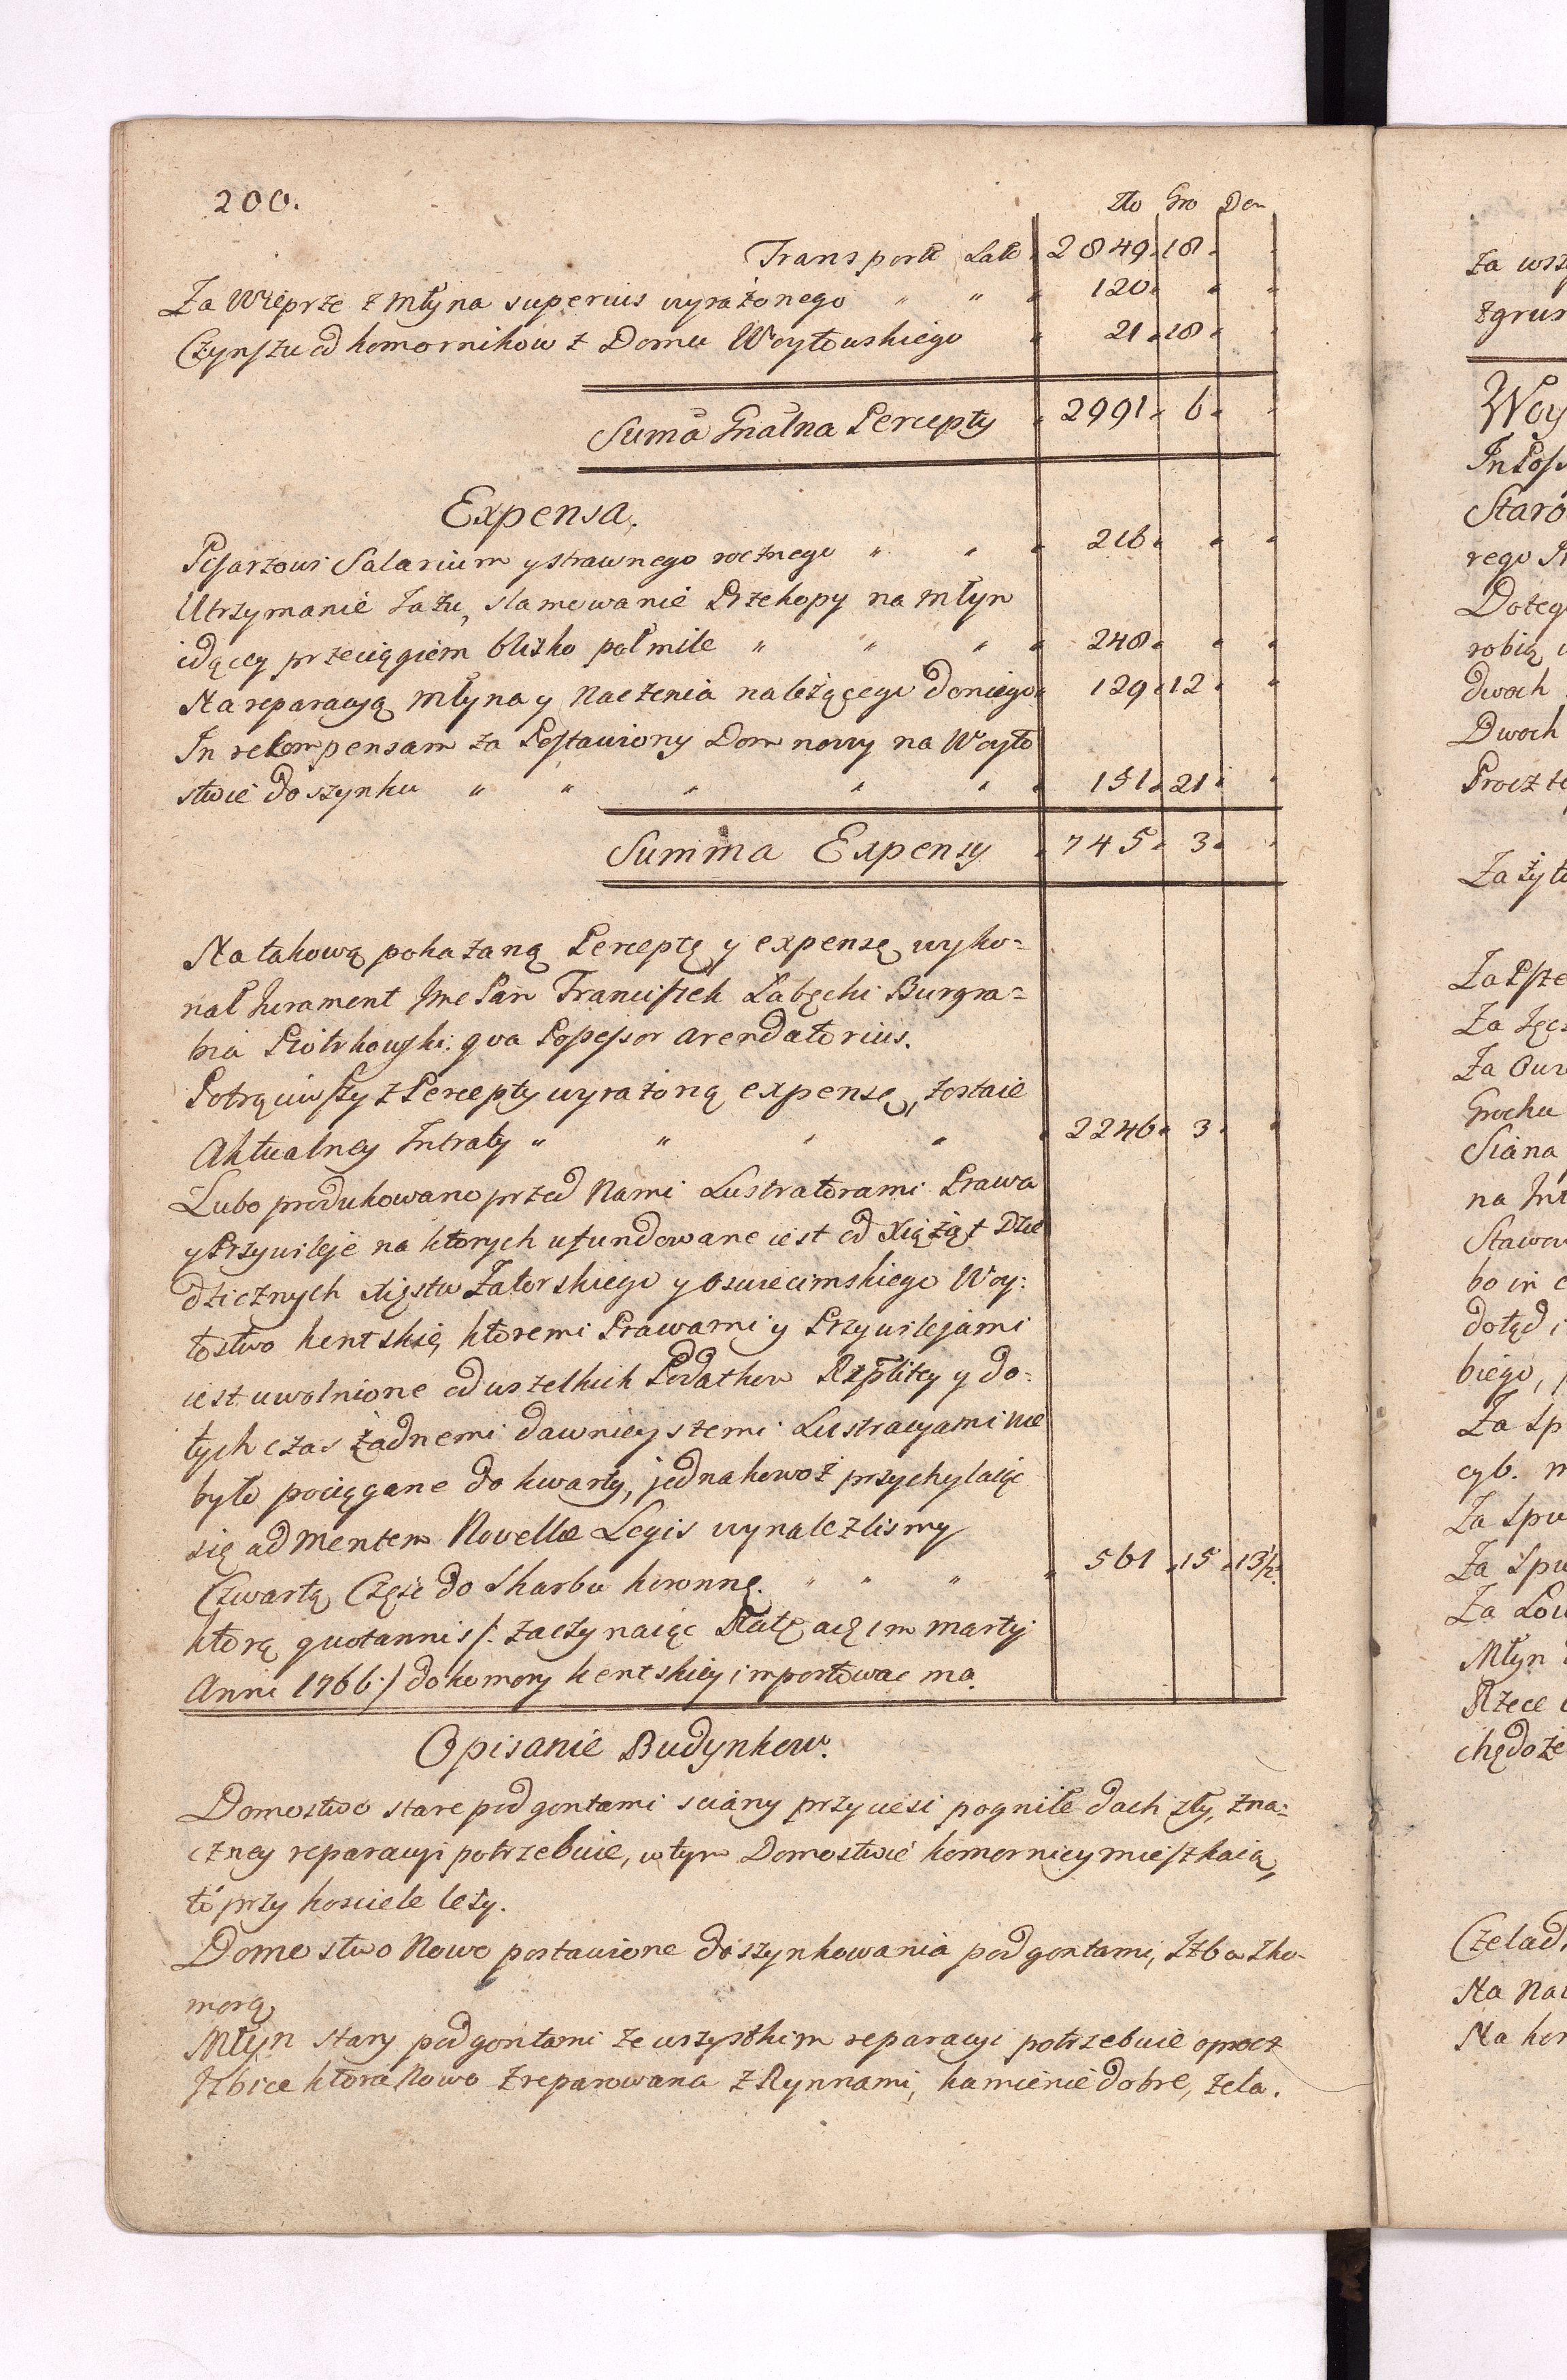 200.
Zło Gro Den
Transport Lat. 2849. 18.
Za Wieprze z Młyna superius wyrażonego " " " 120. " "
Czynszu od komornikow z Domu Woytowskiego " 21. 18. "
Suma Gnalna Percepty " 2991. 6. "
Expensa.
Pisarzowi Salarium y strawnego rocznego " " " 216. " "
Utrzymanie Jazu, stamowanie Przekopy na młyn
idącey przeciągiem blisko poł mile " " " " 248. " "
Na reparacyą młyna y naczenia należącego do niego. 129. 12. "
In rekompensam za Postawiony Dom nowy na Woyto
stwie do szynku " " " " " " 151. 21. "
Summa Expensy " 745. 3. "
Na takową pokazaną Perceptę y expensę wyko=
nał Jurament Jme Pan Franciszek Łabęcki Burgra=
bia Piotrkowski: qva Possessor arendatorius.
Potrąciwszy z Percepty wyrażoną expensę, zostaie
Aktualney Intraty " " " " " 2246. 3. "
Lubo produkowano przed Nami Lustratorami Prawa
y Przywileje na ktorych ufundowane iest od Xiążąt Dzie
dzicznych Xięstw Zatorskiego y Oswiecimskiego Woy:
tostwo kentskie, ktoremi Prawami y Przywilejami
iest uwolnione od wszelkich Podatkow Rzplitey y do:
tych czas żadnemi dawnieyszemi Lustracyami nie
było pociągane do kwarty, jednakowoż przychylaiąc
się ad mentem Novellæ Legis wynalezlismy
Czwartą Część do Skarbu koronnę. " " " " 561. 15. 13½.
ktorą quotannis /: zaczynaiąc Ratę a 1ma martij
Anni 1766 :/ do komory kentskiey importować ma.
Opisanie Budynkow.
Domostwo stare pod gontami sciany przyciesi pogniłe dach zły, zna:
czney reparacyi potrzebuie, w tym Domostwie komornicy mieszkaią,
to przy kosciele leży.
Domostwo Nowo postawione do szynkowania pod gontami, Izba z ko-
morą
Młyn stary pod gontami ze wszystkim reparacyi potrzebuie oprocz
Izbice ktora Nowo zreparowana z Rynnami, kamienie dobre, żela.